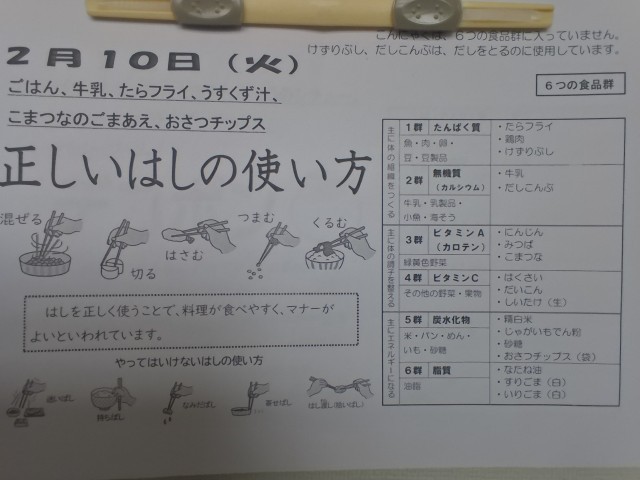 こんにゃくは、6つの食品群に入っていません。
けずりぶし、だしこんぶは、だしをとるのに使用しています。
2月10日（火）
ごはん、牛乳、たらフライ、うすくず汁、
こまつなのごまあえ、おさつチップス
正しいはしの使い方
混ぜる
切る
はさむ
つまむ
くるむ
はしを正しく使うことで、料理が食べやすく、マナーが
よいといわれています。
やってはいけないはしの使い方
迷いばし
持ちばし
なみだばし
寄せばし
はし渡し（拾いばし）
6つの食品群
主に体の組織をつくる
1群 たんぱく質
魚・肉・卵・
豆・豆製品
・たらフライ
・鶏肉
・けずりぶし
2群 無機質
（カルシウム）
牛乳・乳製品・
小魚・海そう
・牛乳
・だしこんぶ
主に体の調子を整える
3群 ビタミンA
（カロテン）
緑黄色野菜
・にんじん
・みつば
・こまつな
4群 ビタミンC
その他の野菜・果物
・はくさい
・だいこん
・しいたけ（生）
主にエネルギーになる
5群 炭水化物
米・パン・めん・
いも・砂糖
・精白米
・じゃがいもでん粉
・砂糖
・おさつチップス（袋）
6群 脂質
油脂
・なたね油
・すりごま（白）
・いりごま（白）